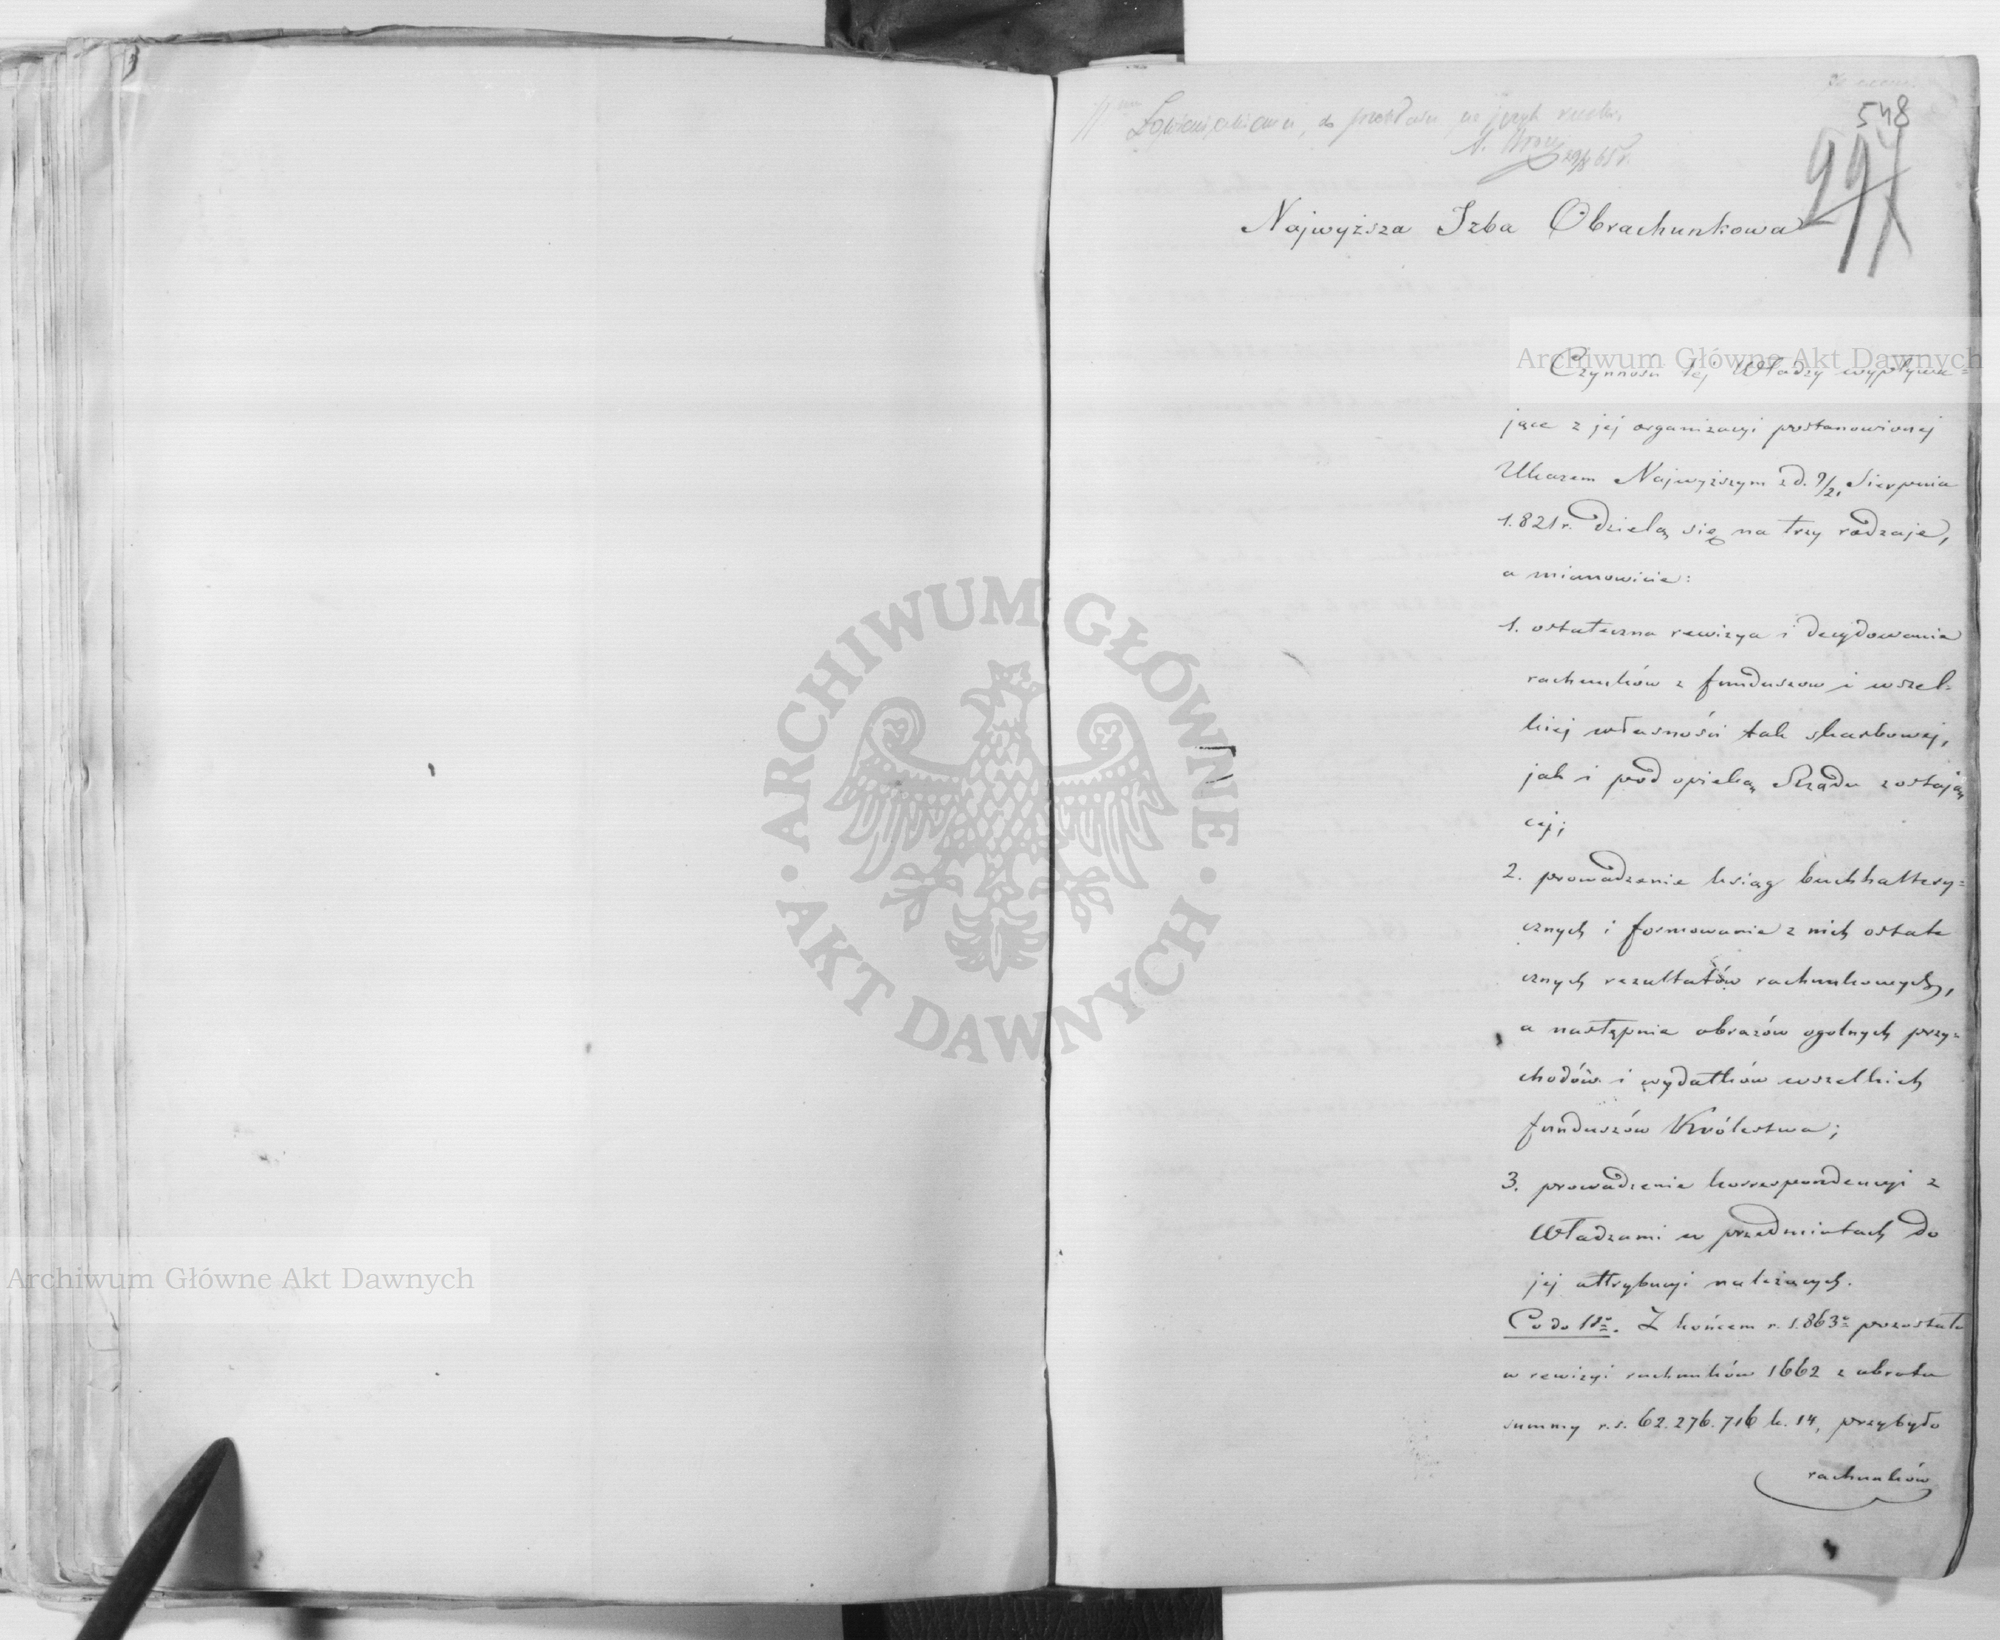 548
297
do przekładu na język
Najwyższa Izba Obrachunkowa
Czynności tej Władzy wypływa=
jące z jej organizacyi postanowionej
Ukazem Najwyższym z d. 9/21 Sierpnia
1.821 r. dzielą się na trzy rodzaje,
a mianowicie:
1. ostateczna rewizya i decydowanie
rachunków z funduszow i wszel-
kiej własności tak skarbowej,
jak i pod opieką Rządu zostają
cej;
2. prowadzenie ksiąg buchhaltery=
cznych i formowanie z nich ostate
cznych rezultatów rachunkowych,
a następnie obrazów ogolnych przy=
chodów i wydatków wszelkich
funduszów Królestwa;
3. prowadzenie korrespondencyi z
Władzami w przedmiotach do
jej attrybucyi należących.
Co do 1go. Z końcem r. 1.863o pozostało
w rewizyi rachunków 1662 z obrotu
summy r.s. 62.276.716 k. 14, przybyło
rachunków
Archiwum Główne Akt Dawnych
Archiwum Główne Akt Dawnych
ARCHIWUM GŁÓWNE · AKT DAWNYCH ·